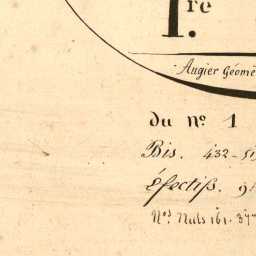 1.re
Augier Géomè
du no 1
Bis. 432-51
Éfectiſs. 94
Nos Nuls 161. 377